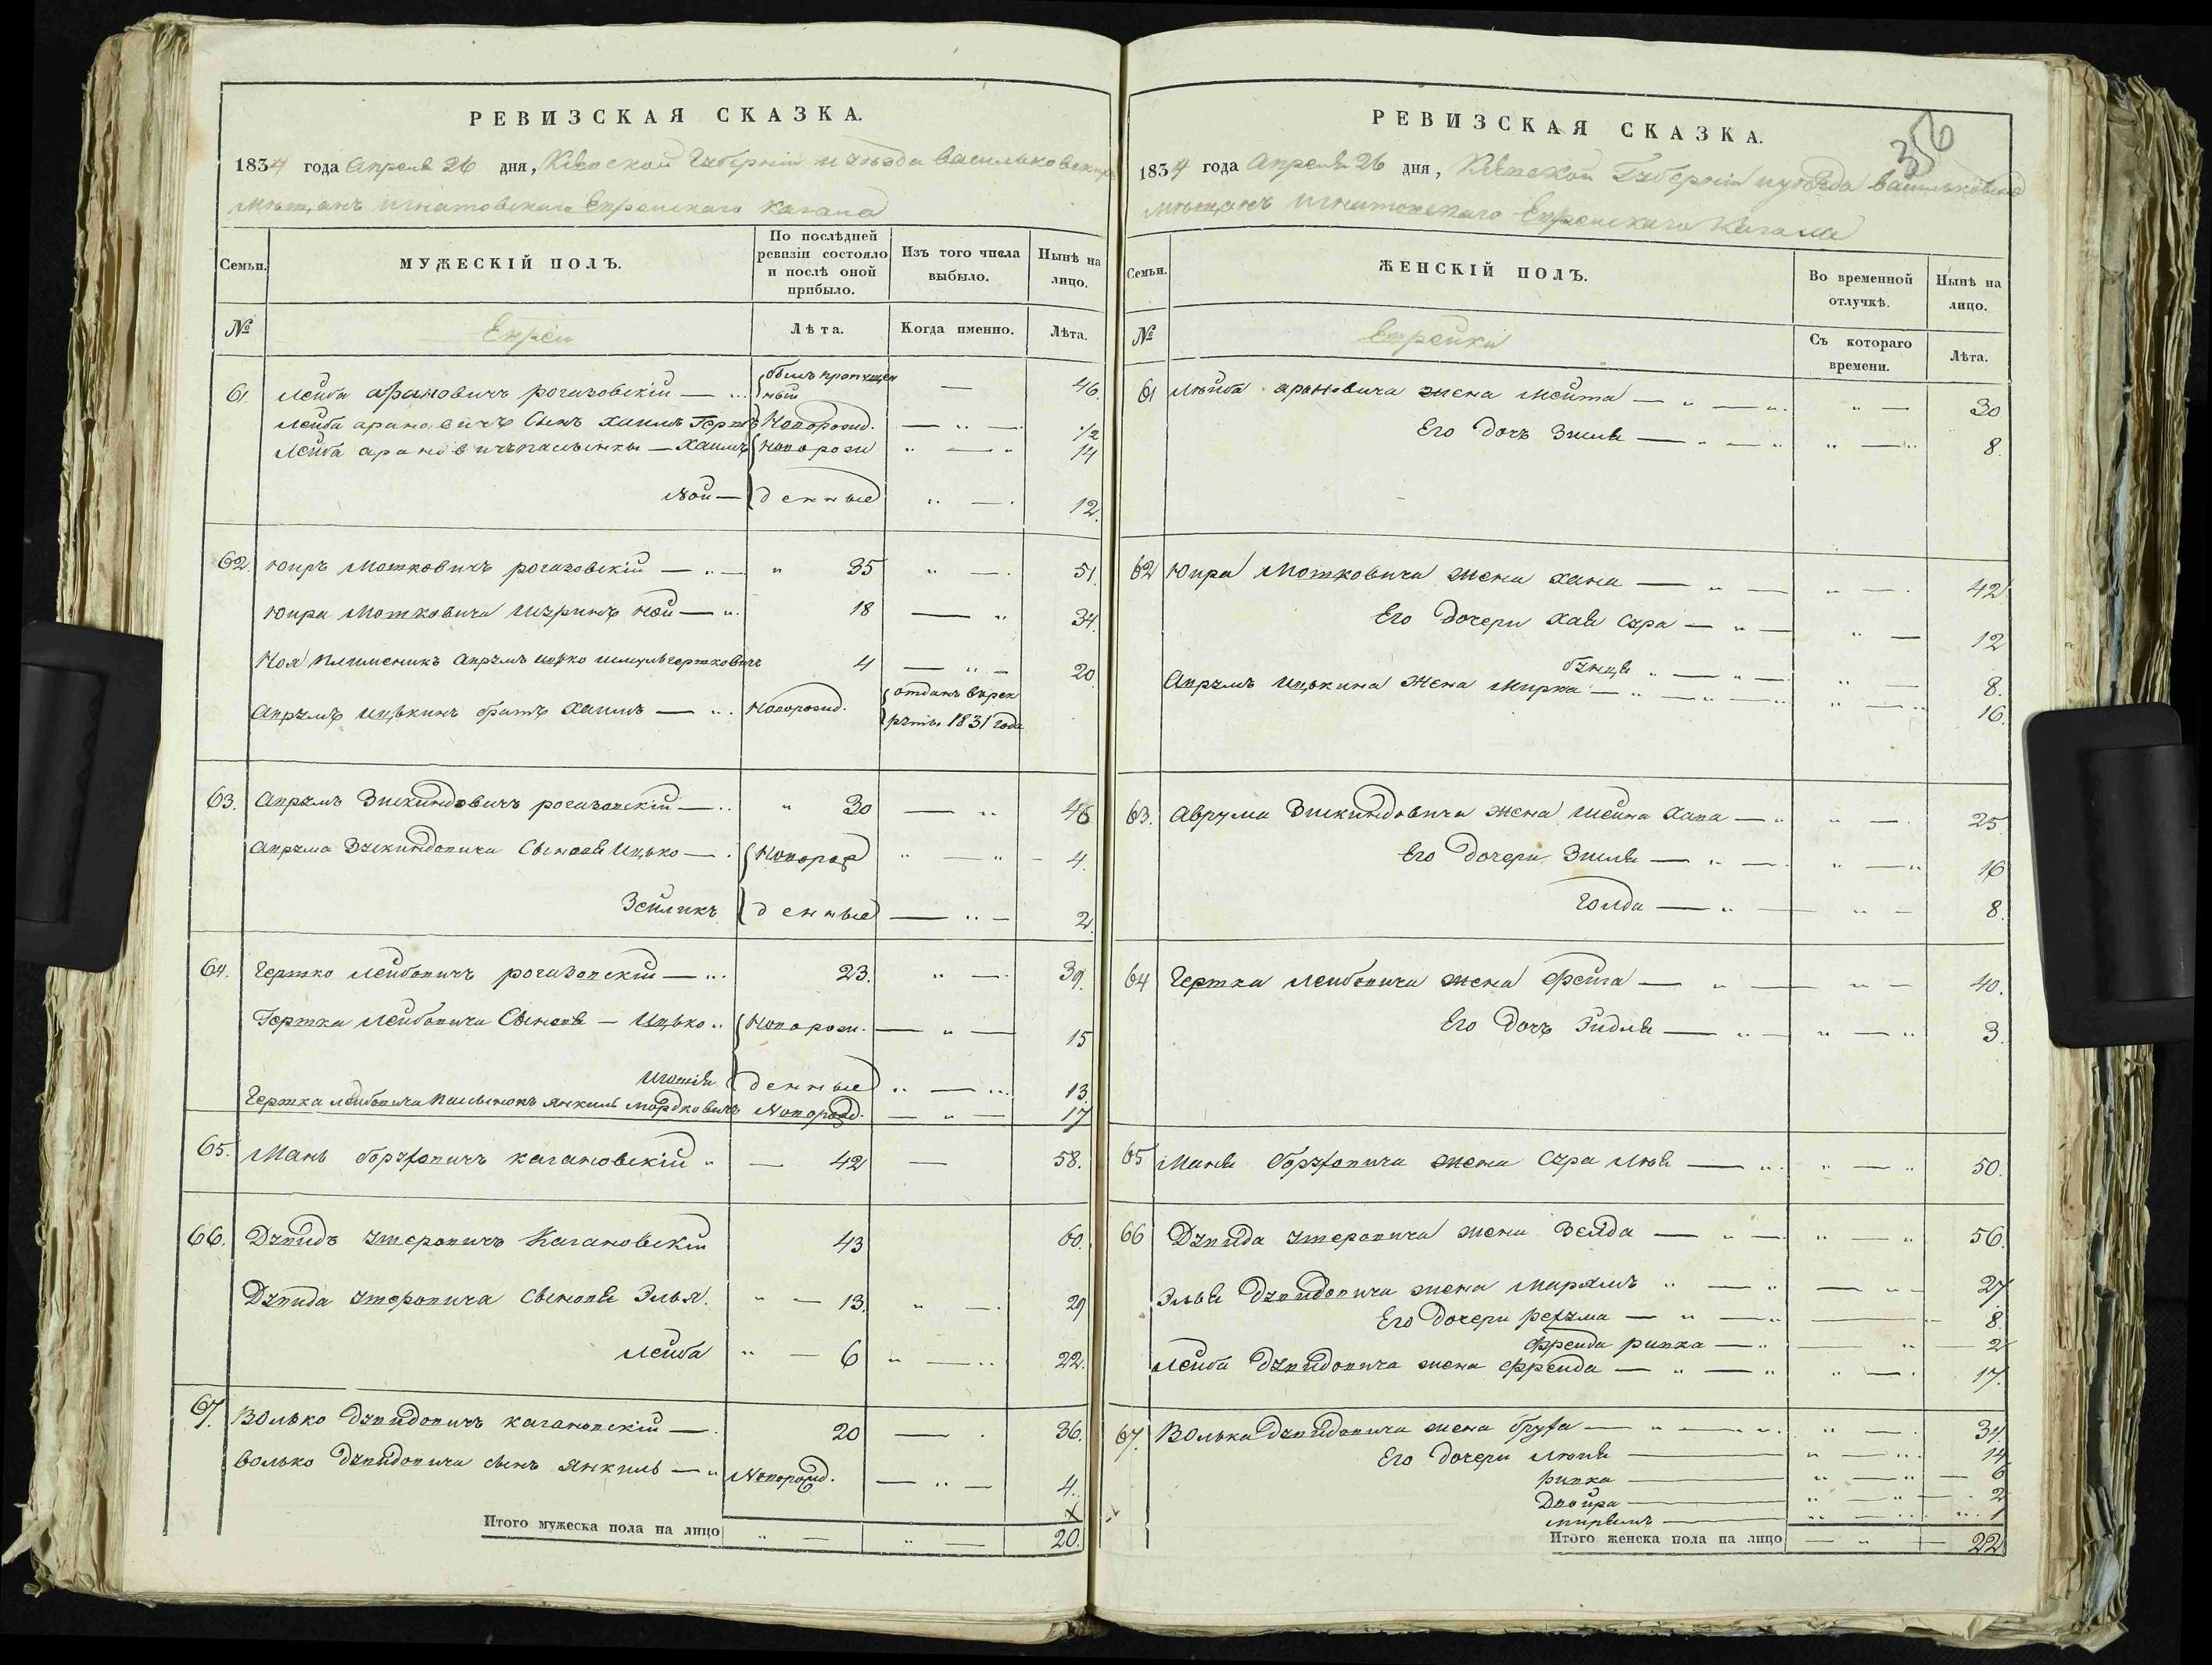 РЕВИЗСКАЯ СКАЗКА.
1834 года Апреля 26 дня, Кіевской Губерніи и уѣзда Васильковскаго
мѣщанъ Игнатовскаго Еврейскаго Кагала
Семьи. МУЖЕСКІЙ ПОЛЪ. По послѣдней ревизіи состояло и послѣ оной прибыло. Изъ того числа выбыло. Нынѣ на лицо.
№ Евреи Лѣта. Когда именно. Лѣта.
61 Лейба Арановичъ рогазовскій — былъ пропущенный — 46.
Лейба арановичъ Сынъ Хаимъ Новорожд. — 1/2
Лейба арановичъ пасынки — Хаимъ новорож 14
Ной — денные 12.
62. Юиръ Мотковичъ рогазовскій — 35 51.
Юира Мотковича Шуринъ Ной — 18 34.
Ноя племеникъ Аврумъ Ицко 4 20
Аврумъ Ицькинъ братъ Хаимъ — Новорожд. отданъ врекруты 1831 года
63. Аврумъ Зискиндовичъ рогазовскій — 30 46
Аврума Зискиндовича Сыновя Ицько — Новорож 4.
Зейликъ денные 2.
64. Гертко Лейбовичъ рогазовскій — 23. 39.
Гертка Лейбовича Сыновя — Ицько Новорож. 15
денные 13.
Гертка Лейбовича пасынокъ Янкиль Мордковичъ Новорожд. 17
65. Мань кагановскій — 42 — 58.
66. Дувидъ Кагановскій 43 60.
Дувида Сыновя Элья. — 13. 29
Лейба — 6 22.
67. Волько Дувидовичъ кагановскій — 20 — 36.
Волько Дувидовича сынъ Янкиль — Новорожд. — 4.
Итого мужеска пола на лицо 20.
РЕВИЗСКАЯ СКАЗКА.
356
1834 года Апреля 26 дня, Кіевской Губерніи и уѣзда Васильковска
мѣщанъ Игнатовскаго Еврейскаго Кагала
Семьи. ЖЕНСКІЙ ПОЛЪ. Во временной отлучкѣ. Нынѣ на лицо.
№ Еврейки Съ котораго времени. Лѣта.
61 Лейба арановича жена — 30
Его дочъ Зисля — 8.
62 Юира Мотковича жена хана — 42
Его дочери Хая Сура — 12
8.
Аврумъ Ицькина жена Мирка — 16.
63. Аврума Зискиндовича жена Шейна Хана — 25
Его дочери Зисля — 16
Голда — 8.
64 Гертка Лейбовича жена Фейга — 40.
Его дочъ — 3.
65 Маня жена Сура — 50.
66 Дувида жена Зелда — 56.
Элья Дувидовича жена Марямъ — 27
Его дочери — 8.
Фрейда ривка — 2
Лейба Дувидовича жена Фрейда — 17.
67. Волька Дувидовича жена — 34
Его дочери — 14
Ривка — 6
Двойра — 2
Мирямъ — 1
Итого женска пола на лицо — 22